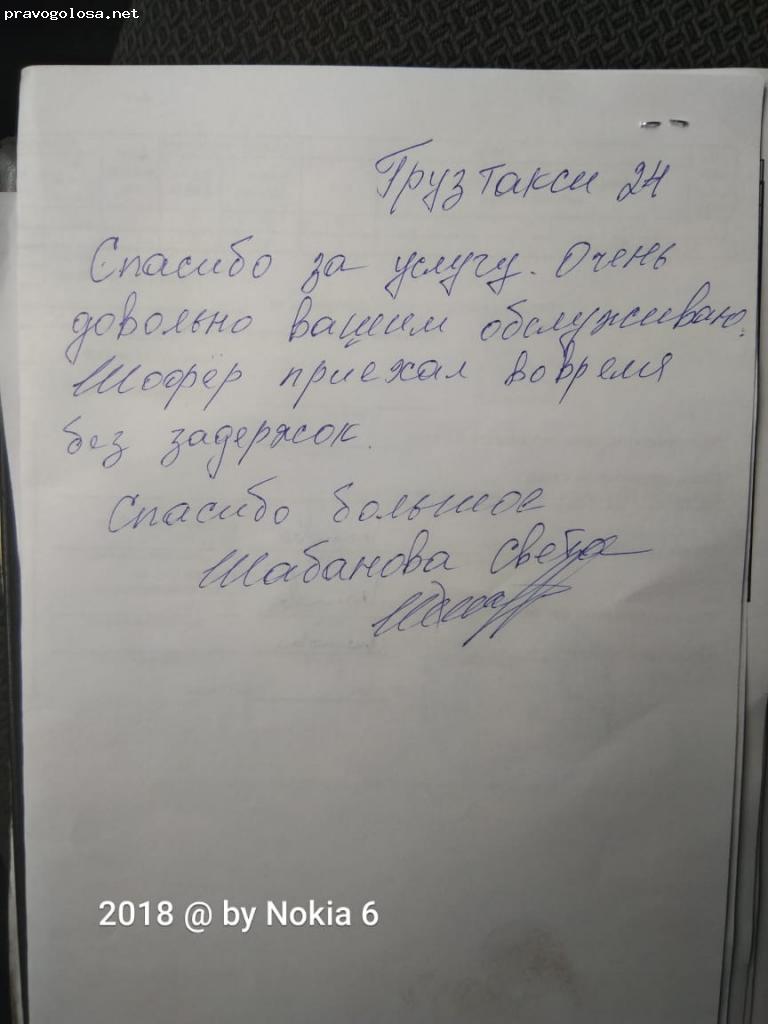 pravogolosa.net
Грузтакси 24
Спасибо за услугу. Очень
довольно вашим обслуживаю.
Шофёр приехал вовремя
без задержок.
Спасибо большое
Шабанова Света
2018 @ by Nokia 6